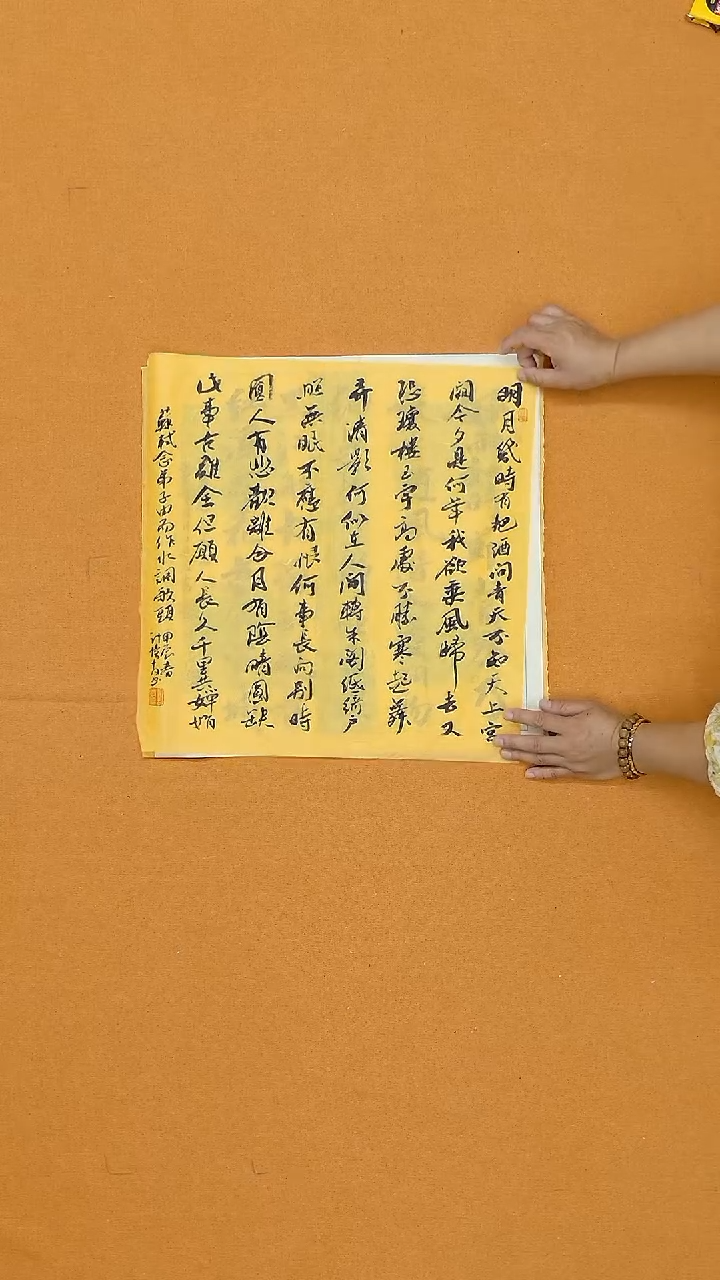 明月幾時有把酒問青天不知天上宮
闕今夕是何年我欲乘風歸去又
恐瓊樓玉宇高處不勝寒起舞
弄清影何似在人間轉朱閣低綺戶
照無眠不應有恨何事長向別時
圓人有悲歡離合月有陰晴圓缺
此事古難全但願人長久千里共嬋娟
蘇軾念弟子由而作水調歌頭 甲辰春